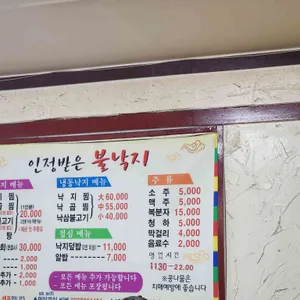 인정받은 불낙지
메뉴
냉동낙지 메뉴
주 류
찜
(1인분)
20,000
불고기
탕
낙 지 찜
낙 곱 찜
낙삼불고기
大 60,000
中 55,000
小 40,000
소 주 5,000
맥 주 5,000
복분자 15,000
청 하 5,000
막걸리 4,000
음료수 2,000
점심 메뉴
낙지덮밥 11,000
알밥 7,000
30,000
2,000
2,000
영 업 시 간
1130~22.00
※콩나물은
치매예방에 좋습니다
- 모든 메뉴 추가 가능합니다
- 모든 메뉴 포장됩니다